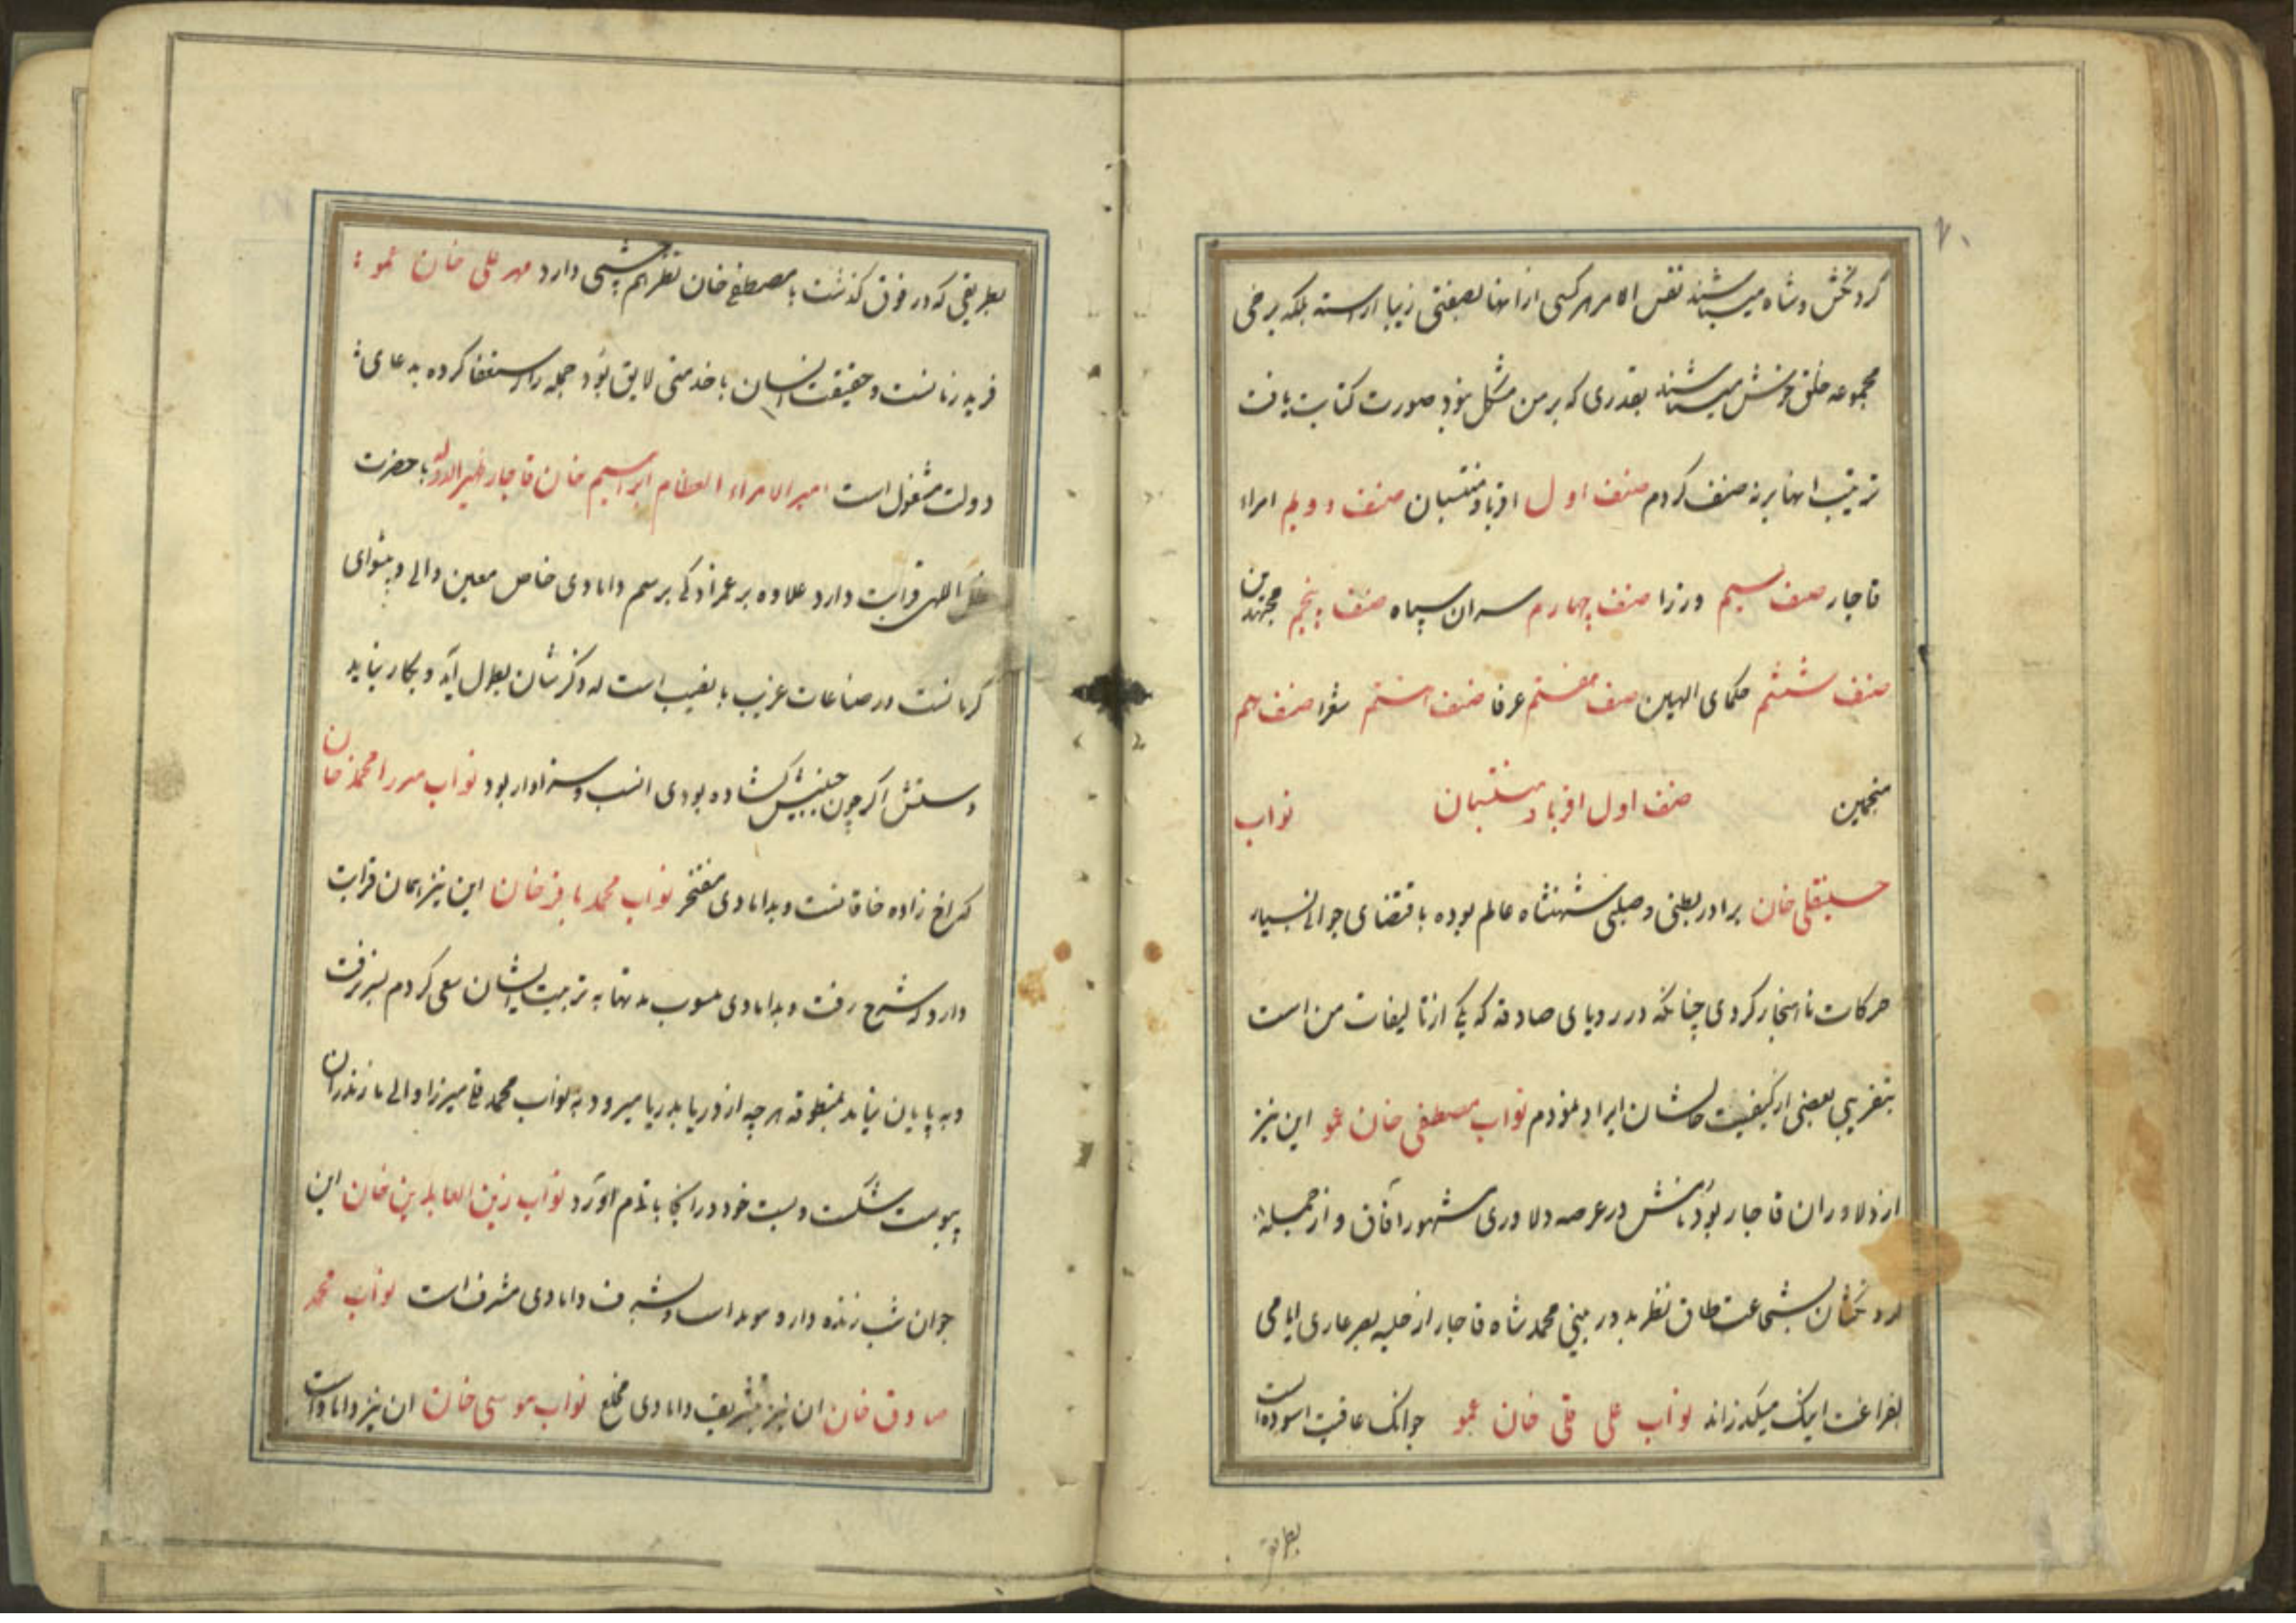 ۷۰
کردنکش و شاه میباشند نفس الامر هر کسی از انها بصفتی زیبا اراسته بلکه برخی
مجموعه خلق خوش میباشند بقدری که بر من مشکل نمود صورت کتابت یافت
ترتیب انها بر نه صنف کردم صنف اول اقربا و منتسبان صنف دویم امراء
قاجار صنف سیم وزرا صنف چهارم سران سپاه صنف پنجم مجتهدین
صنف ششم حکمای الهیین صنف هفتم عرفا صنف هشتم شعرا صنف نهم
منجمین صنف اول اقربا و منتسبان نواب
حسینقلی خان برادر بطنی و صلبی شهنشاه عالم بوده باقتضای جوانی بسیار
حرکات ناهنجار کردی چنانکه در رویای صادقه که یکی از تالیفات من است
بتقریبی بعضی از کیفیت حالشان ایراد نمودم نواب مصطفی خان عمو این نیز
از دلاوران قاجار بود نامش در عرصه دلاوری مشهور آفاق و از جمله
کردنکشان بشجاعت طاق نظر بد در بینی محمد شاه قاجار از حلیه بصر عاری ایامی
بفراغت اینک میکذراند نواب علی قلی خان عمو جوانک عاقبت اسوده است
بطریقی
بطریقی که در فوق کذشت با مصطفی خان نظر هم چشمی دارد مهر علی خان عمو
فرید زمانست و حقیقت انسان با خدمتی لایق بود جمله را استعفا کرده بدعای
دولت مشغول است امیر الامراء العظام ابراهیم خان قاجار ظهیر الدوله با حضرت
ظل اللهی قرابت دارد علاوه بر عمزادکی برسم دامادی خاص معین والی و پیشوای
کرمانست در صناعات غریب با نصیب است که ذکرشان بطول آید و بکار نیاید
دستش اکر چون جبینش کشاده بودی انسب و سزاوار بود نواب میرزا محمد خان
که اخ زاده خاقانست و بدامادی مفتخر نواب محمد باقر خان این نیز همان قرابت
دارد که شرح رفت و بدامادی منسوب مدتها به تربیت ایشان سعی کردم بسر نرفت
و به پایان نیامد بمنطوقه هر چه از دریا بدریا میرود به نواب محمد قلی میرزا والی مازندران
پیوست شکست و بست خود در انجا باتمام آورد نواب زین العابدین خان این
جوان شب زنده دار و موید است و بشرف دامادی مشرف است نواب محمد
صادق خان ان نیز بتشریف دامادی مخلع نواب موسی خان ان نیز داماد است